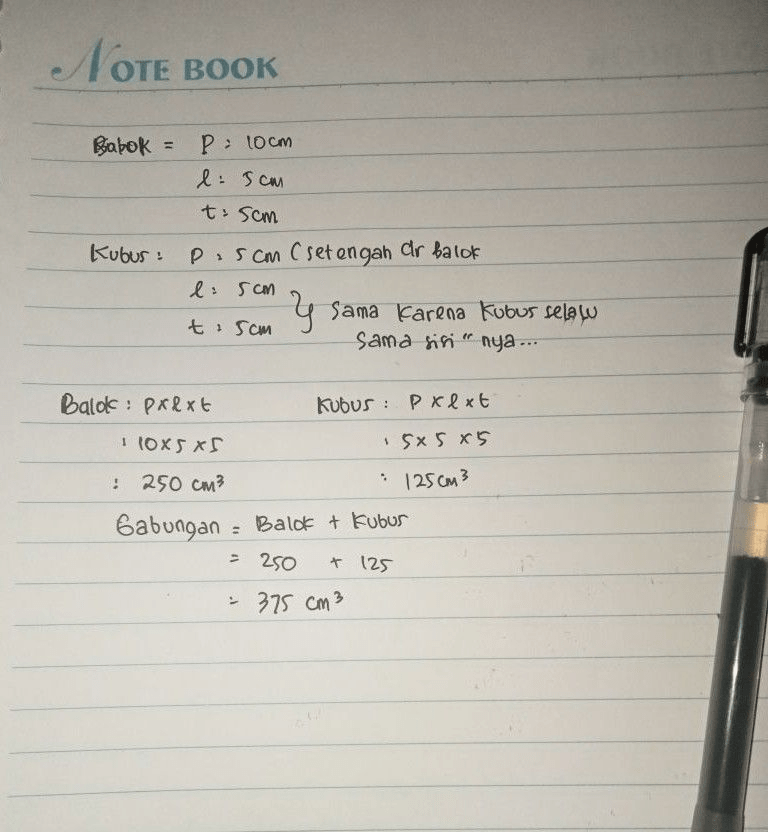 NOTE BOOK
Balok = P : 10 cm
l : 5 cm
t : 5 cm
Kubus : P : 5 cm (setengah dr balok
l : 5 cm
t : 5 cm } Sama Karena Kubus selalu
Sama sisi" nya...
Balok : P x l x t Kubus : P x l x t
: 10 x 5 x 5 : 5 x 5 x 5
: 250 cm³ : 125 cm³
Gabungan = Balok + Kubus
= 250 + 125
= 375 cm³